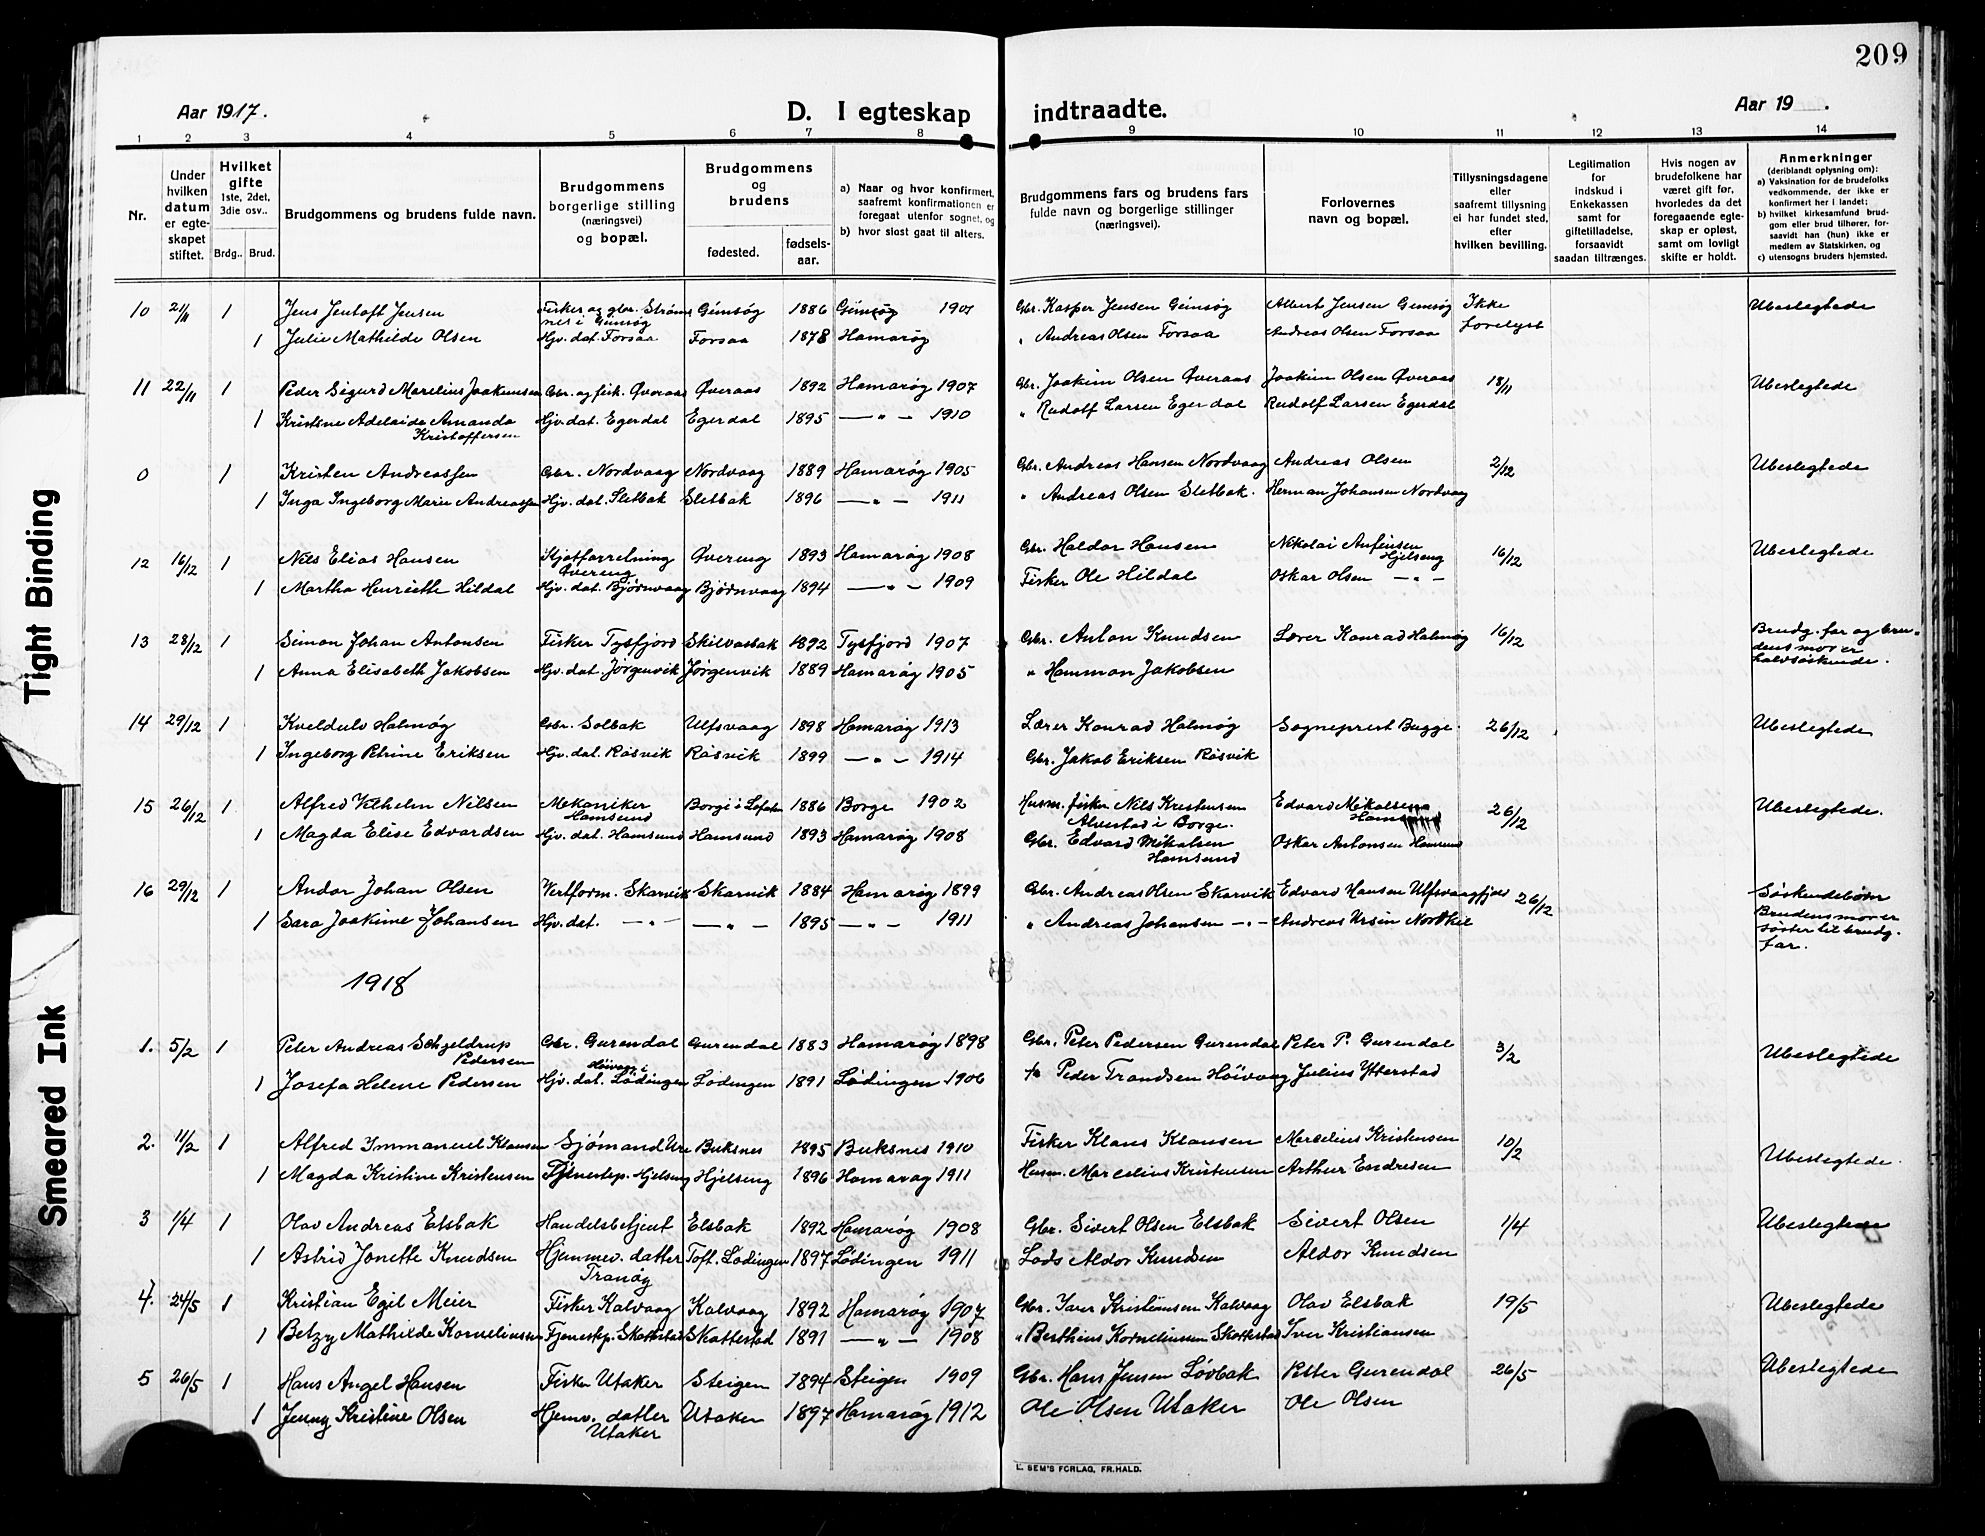 209
Aar 1917.
D. I egteskap indtraadte.
Aar 19 .
1 2 3 4 5 6 7 8 9 10 11 12 13 14
Nr.
Under hvilken datum er egteskapet stiftet.
Hvilket gifte 1ste, 2det, 3die osv..
Brdg.. Brud.
Brudgommens og brudens fulde navn.
Brudgommens borgerlige stilling (næringsvei) og bopæl.
Brudgommens og brudens
fødested.
fødsels-aar.
a) Naar og hvor konfirmert, saafremt konfirmationen er foregaat utenfor sognet, og
b) hvor sidst gaat til alters.
Brudgommens fars og brudens fars fulde navn og borgerlige stillinger (næringsvei).
Forlovernes navn og bopæl.
Tillysningsdagene eller saafremt tillysning ei har fundet sted, efter hvilken bevilling.
Legitimation for indskud i Enkekassen samt for giftetilladelse, forsaavidt saadan tiltrænges.
Hvis nogen av brudefolkene har været gift før, hvorledes da det foregaaende egteskap er opløst, samt om lovligt skifte er holdt.
Anmerkninger (deriblandt oplysning om):
a) Vaksination for de brudefolks vedkommende, der ikke er konfirmert her i landet;
b) hvilket kirkesamfund brudgom eller brud tilhører, forsaavidt han (hun) ikke er medlem av Statskirken, og
c) utensogns bruders hjemsted.
10 2/11 1 Jens Jentoft Jensen Fisker og gbr. Strømnes i Gimsøy Gimsøy 1886 Gimsøy 1901 Gbr. Kasper Jensen Gimsøy Albert Jensen Gimsøy Ikke forelyst Ubeslegtede
1 Julie Mathilde Olsen Hjv. dat. Forsaa Forsaa 1878 Hamarøy " Andreas Olsen Forsaa Andreas Olsen Forsaa
11 22/11 1 Peder Sigurd Marelius Joakimsen Gbr. og fisk. Øveraas Øveraas 1892 Hamarøy 1907 Gbr. Joakim Olsen Øveraas Joakim Olsen Øveraas 18/11 Ubeslegtede
1 Kristine Adelaide Amanda Kristoffersen Hjv. dat. Egerdal Egerdal 1895 — " — 1910 " Rudolf Larsen Egerdal Rudolf Larsen Egerdal
0 1 Kristen Andreassen Gbr. Nordvaag Nordvaag 1889 Hamarøy 1905 Gbr. Andreas Hansen Nordvaag Andreas Olsen 2/12 Ubeslegtede
1 Inga Ingeborg Marie Andreassen Hjv. dat. Sletbak Sletbak 1896 — " — 1911 " Andreas Olsen Sletbak. Herman Johansen Nordvaag
12 16/12 1 Nils Elias Hansen Øvereng Øvereng 1893 Hamarøy 1908 Gbr. Haldor Hansen Nikolai Anfinsen Hjelseng 16/12 Ubeslegtede
1 Martha Henriette Hildal Hjv. dat. Bjørnvaag Bjørnvaag 1894 — " — 1909 Fisker Ole Hildal Oskar Olsen — " —
13 28/12 1 Simon Johan Antonsen Fisker Tysfjord Skilvasbak 1892 Tysfjord 1907 Gbr. Anton Knudsen Lærer Konrad Halmøy 16/12 Brudg. far og brudens mor er halvsøskende.
1 Anna Elisabeth Jakobsen Hjv. dat. Jørgenvik Jørgenvik 1889 Hamarøy 1905 " Hammon Jakobsen
14 29/12 1 Kveldulv Halmøy Gbr. Solbak Ulfsvaag 1898 Hamarøy 1913 Lærer Konrad Halmøy Sogneprest Bugge. 26/12 Ubeslegtede
1 Ingeborg Petrine Eriksen Hjv. dat. Råsvik Råsvik 1899 — " — 1914 Gbr. Jakob Eriksen Råsvik
15 26/12 1 Alfred Vilhelm Nilsen Mekaniker Hamsund Borge i Lofoten 1886 Borge 1902 Husm. fisker Nils Kristensen Alvestad i Borge. Edvard Mikalsen Hamsund 26/12 Ubeslegtede.
1 Magda Elise Edvardsen Hjv. dat. Hamsund Hamsund 1893 Hamarøy 1908 Gbr. Edvard Mikalsen Hamsund Oskar Antonsen Hamsund
16 29/12 1 Andor Johan Olsen Verkform. Skarvik Skarvik 1884 Hamarøy 1899 Gbr. Andreas Olsen Skarvik Edvard Hansen Ulfsvaagfjeld 26/12 Søskendebørn Brudens mor er søster til brudg. far.
1 Sara Joakime Johansen Hjv. dat. — " — — " — 1895 — " — 1911 " Andreas Johansen — " — Andreas Ursin Nordkil
1918
1. 5/2 1 Peter Andreas Schjeldrup Pedersen Gbr. Gurendal Gurendal 1883 Hamarøy 1898 Gbr. Peter Pedersen Gurendal Peter P. Gurendal 3/2 Ubeslegtede
1 Josefa Helene Pedersen Hjv. dat. Høivaag i Lødingen Lødingen 1891 Lødingen 1906 Peder Trondsen Høivaag Julius Ytterstad
2. 11/2 1 Alfred Immanuel Klausen Sjømand Ure Buksnes 1895 Buksnes 1910 Fisker Klaus Klausen Marcelius Kristensen 10/2 Ubeslegtede.
1 Magda Kristine Kristensen Tjenestep. Hjelseng Hjelseng 1896 Hamarøy 1911 Husm. Marcelius Kristensen Arthur Endresen
3 1/4 1 Olav Andreas Elsbak Handelsbetjent Elsbak 1892 Hamarøy 1908 Gbr. Sivert Olsen Elsbak Sivert Olsen 1/4 Ubeslegtede
1 Astrid Jonette Knudsen Hjemmev. datter Tranøy Toft. Lødingen 1897 Lødingen 1911 Lods Aldor Knudsen Aldor Knudsen
4. 24/5 1 Kristian Egil Meier Fisker Kalvaag Kalvaag 1892 Hamarøy 1907 Gbr. Iver Kristiansen Kalvaag Olav Elsbak 19/5 Ubeslegtede
1 Betzy Mathilde Korneliussen Tjenestep. Skottestad Skottestad 1891 — " — 1908 " Berthius Korneliussen Skottestad Iver Kristiansen
5 26/5 1 Hans Angel Hansen Fisker Utaker Steigen 1894 Steigen 1909 Gbr. Hans Jensen Løvbak Petter Gurendal 26/5 Ubeslegtede
1 Jenny Kristine Olsen Hjemv. datter Utaker Utaker 1897 Hamarøy 1912 Ole Olsen Utaker Ole Olsen
E. SEM'S FORLAG, FR.HALD.
Tight Binding
Smeared Ink